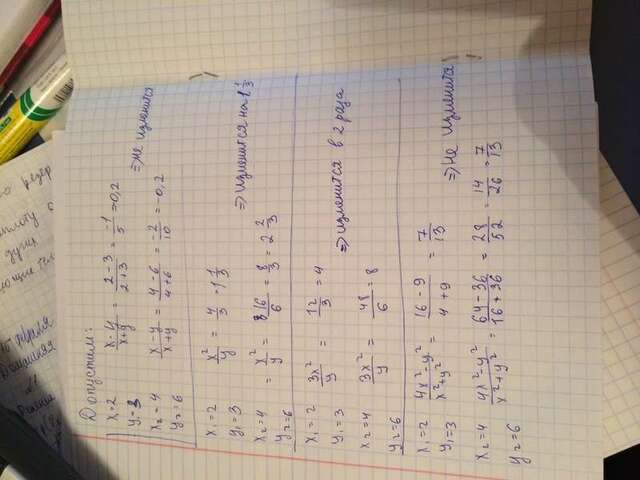 Допустим:
x=2
y=3
x-y/x+y = 2-3/2+3 = -1/5 = -0,2
x₂=4
y₂=6
x-y/x+y = 4-6/4+6 = -2/10 = -0,2 ⇒ не изменится
x₁=2
y₁=3
x²/y = 4/3 = 1 1/3
x₂=4
y₂=6
= x²/y = 16/6 = 8/3 = 2 2/3 ⇒ изменится на 1/3
x₁=2
y₁=3
3x²/y = 12/3 = 4
x₂=4
y₂=6
3x²/y = 48/6 = 8 ⇒ изменится в 2 раза
x₁=2
y₁=3
4x²-y²/x²+y² = 16-9/4+9 = 7/13
x₂=4
y₂=6
4x²-y²/x²+y² = 64-36/16+36 = 28/52 = 14/26 = 7/13 ⇒ не изменится